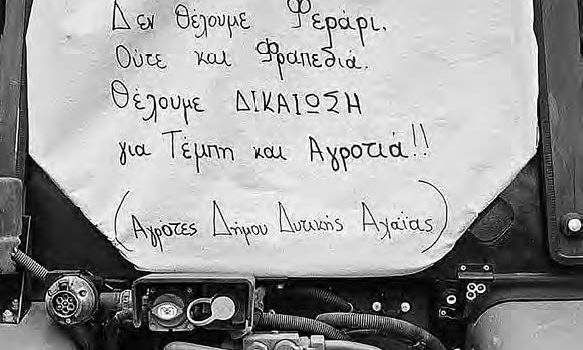 Δεν θέλουμε Φεράρι.
Ούτε και Φραπεδιά.
Θέλουμε ΔΙΚΑΙΩΣΗ
για Τέμπη και Αγροτιά!!
(Αγρότες Δήμου Δυτικής Αχαΐας)